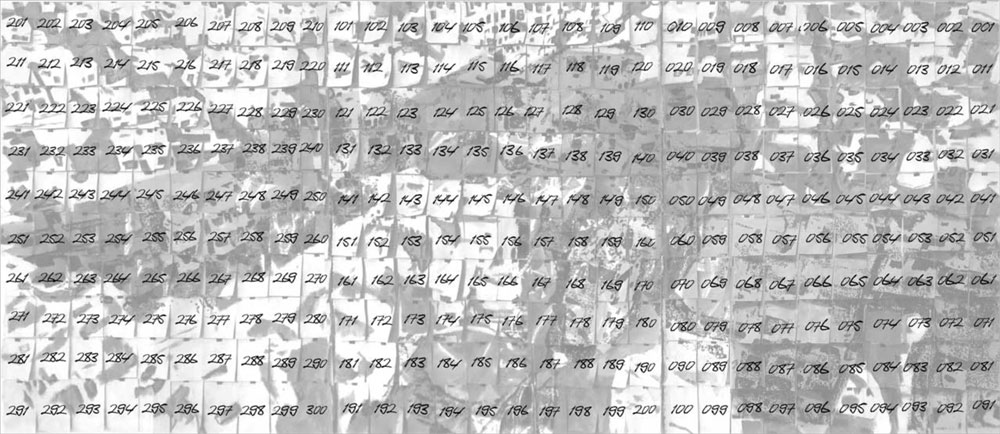 201 202 203 204 205 206 207 208 209 210 101 102 103 104 105 106 107 108 109 110 010 009 008 007 006 005 004 003 002 001
211 212 213 214 215 216 217 218 219 220 111 112 113 114 115 116 117 118 119 120 020 019 018 017 016 015 014 013 012 011
221 222 223 224 225 226 227 228 229 230 121 122 123 124 125 126 127 128 129 130 030 029 028 027 026 025 024 023 022 021
231 232 233 234 235 236 237 238 239 240 131 132 133 134 135 136 137 138 139 140 040 039 038 037 036 035 034 033 032 031
241 242 243 244 245 246 247 248 249 250 141 142 143 144 145 146 147 148 149 150 050 049 048 047 046 045 044 043 042 041
251 252 253 254 255 256 257 258 259 260 151 152 153 154 155 156 157 158 159 160 060 059 058 057 056 055 054 053 052 051
261 262 263 264 265 266 267 268 269 270 161 162 163 164 165 166 167 168 169 170 070 069 068 067 066 065 064 063 062 061
271 272 273 274 275 276 277 278 279 280 171 172 173 174 175 176 177 178 179 180 080 079 078 077 076 075 074 073 072 071
281 282 283 284 285 286 287 288 289 290 181 182 183 184 185 186 187 188 189 190 090 089 088 087 086 085 084 083 082 081
291 292 293 294 295 296 297 298 299 300 191 192 193 194 195 196 197 198 199 200 100 099 098 097 096 095 094 093 092 091